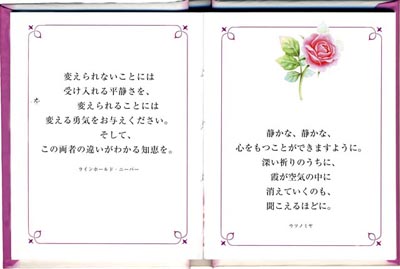 変えられないことには
受け入れる平静さを、
変えられることには
変える勇気をお与えください。
そして、
この両者の違いがわかる知恵を。
ラインホールド・ニーバー
静かな、静かな、
心をもつことができますように。
深い祈りのうちに、
霞が空気の中に
消えていくのも、
聞こえるほどに。
ウツノミヤ